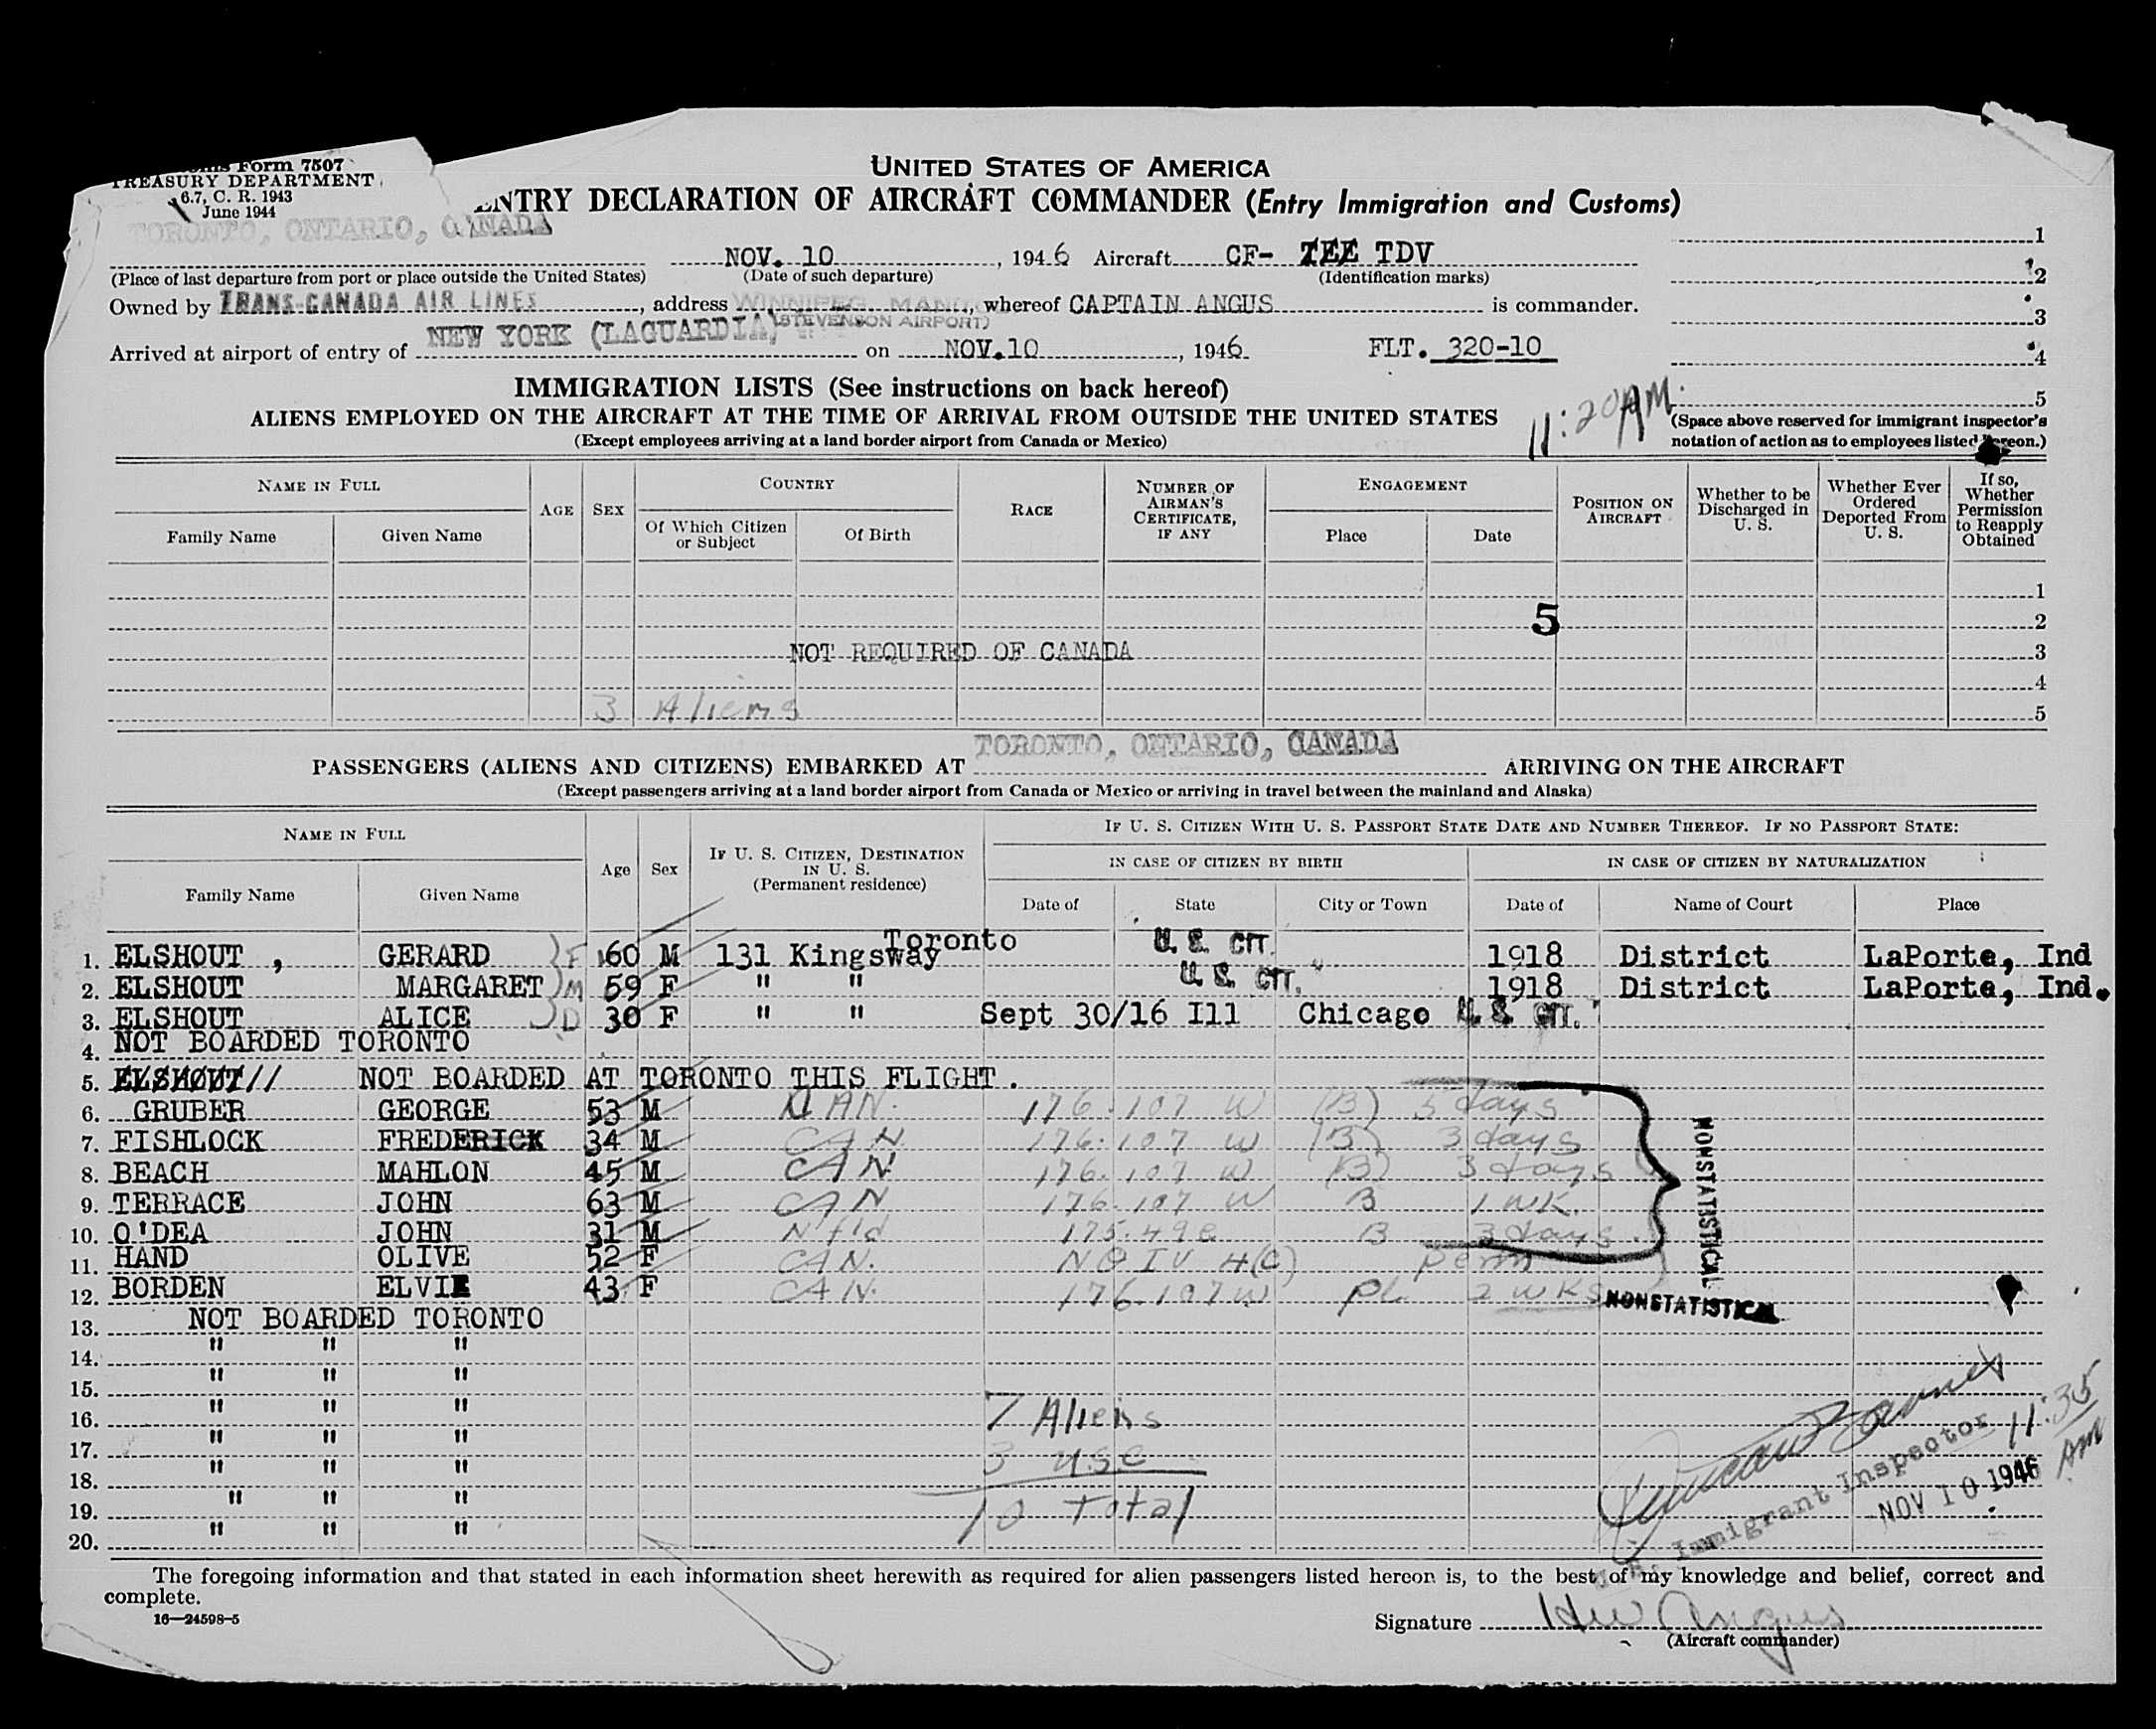 UNITED STATES OF AMERICA
Form 7507
TREASURY DEPARTMENT
6.7, C. R. 1943
June 1944
ENTRY DECLARATION OF AIRCRAFT COMMANDER (Entry Immigration and Customs)
TORONTO, ONTARIO, CANADA
NOV. 10, 1946 Aircraft CF- TEE TDV
1
(Place of last departure from port or place outside the United States) (Date of such departure) (Identification marks)
2
Owned by TRANS-CANADA AIR LINES, address WINNIPEG, MAN., whereof CAPTAIN ANGUS is commander.
(STEVENSON AIRPORT)
3
Arrived at airport of entry of NEW YORK (LAGUARDIA) on NOV.10, 1946 FLT. 320-10
4
IMMIGRATION LISTS (See instructions on back hereof)
5
11:20 AM.
ALIENS EMPLOYED ON THE AIRCRAFT AT THE TIME OF ARRIVAL FROM OUTSIDE THE UNITED STATES
(Space above reserved for immigrant inspector's
(Except employees arriving at a land border airport from Canada or Mexico)
notation of action as to employees listed hereon.)
NAME IN FULL
Family Name Given Name
AGE SEX
COUNTRY
Of Which Citizen or Subject
Of Birth
RACE
NUMBER OF AIRMAN'S CERTIFICATE, IF ANY
ENGAGEMENT
Place Date
POSITION ON AIRCRAFT
Whether to be Discharged in U. S.
Whether Ever Ordered Deported From U. S.
If so, Whether Permission to Reapply Obtained
1
5 2
NOT REQUIRED OF CANADA 3
4
3 Aliens 5
TORONTO, ONTARIO, CANADA
PASSENGERS (ALIENS AND CITIZENS) EMBARKED AT ARRIVING ON THE AIRCRAFT
(Except passengers arriving at a land border airport from Canada or Mexico or arriving in travel between the mainland and Alaska)
NAME IN FULL
Family Name Given Name
Age Sex
IF U. S. CITIZEN, DESTINATION IN U. S. (Permanent residence)
IF U. S. CITIZEN WITH U. S. PASSPORT STATE DATE AND NUMBER THEREOF. IF NO PASSPORT STATE:
IN CASE OF CITIZEN BY BIRTH IN CASE OF CITIZEN BY NATURALIZATION
Date of State City or Town Date of Name of Court Place
1. ELSHOUT , GERARD F 60 M 131 Kingsway Toronto U. S. CIT. 1918 District LaPorte, Ind
2. ELSHOUT MARGARET M 59 F " " U. S. CIT. 1918 District LaPorte, Ind.
3. ELSHOUT ALICE D 30 F " " Sept 30/16 Ill Chicago U. S. CIT.
4. NOT BOARDED TORONTO
5. ELSHOUT// NOT BOARDED AT TORONTO THIS FLIGHT.
6. GRUBER GEORGE 53 M CAN. 176.107 W (B) 3 days
7. FISHLOCK FREDERICK 34 M CAN 176.107 W (B) 3 days
8. BEACH MAHLON 45 M CAN 176.107 W (B) 3 days
9. TERRACE JOHN 63 M CAN 176.107 W B 1 WK.
10. O'DEA JOHN 31 M Nfld 175.49e B 3 days
11. HAND OLIVE 52 F CAN. NQIV 4(C) perm
12. BORDEN ELVIE 43 F CAN. 176.107W PL 2 WKS
NONSTATISTICAL
NONSTATISTICAL
13. NOT BOARDED TORONTO
14. " " "
15. " " "
16. " " "
17. " " "
18. " " "
19. " " "
20. " " "
7 Aliens
3 USC
10 Total
11:35 AM
Immigrant Inspector
NOV 10 1946
The foregoing information and that stated in each information sheet herewith as required for alien passengers listed hereon is, to the best of my knowledge and belief, correct and
complete.
16—24598-5
Signature HW Angus
(Aircraft commander)